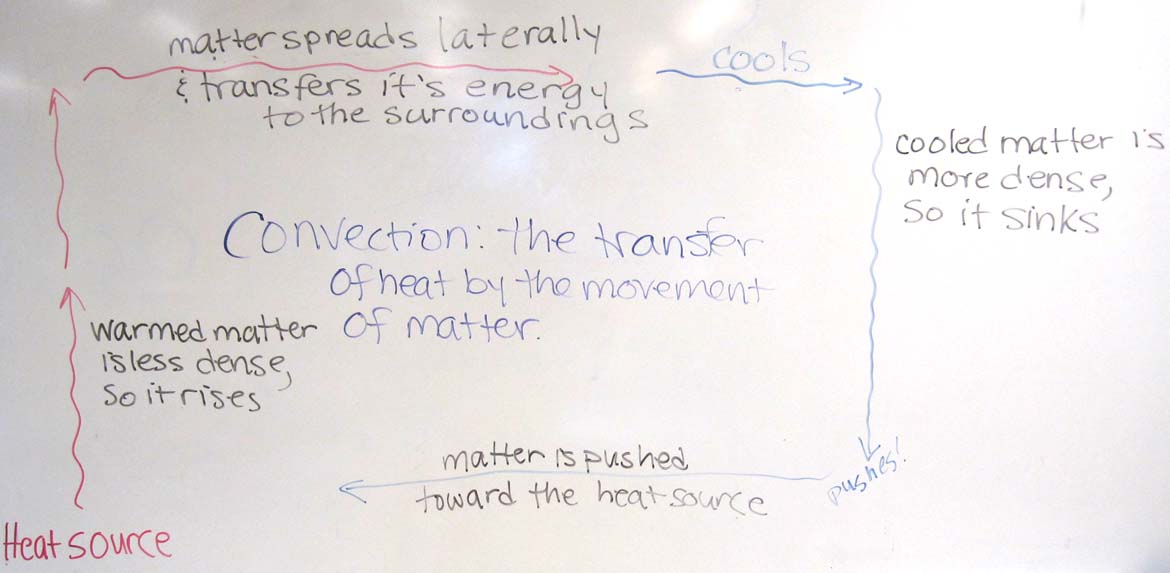 matter spreads laterally
& transfers it's energy
to the surroundings
cools
cooled matter is
more dense,
so it sinks
Convection: the transfer
of heat by the movement
of matter.
warmed matter
is less dense,
so it rises
matter is pushed
toward the heat source
pushes!
Heat source